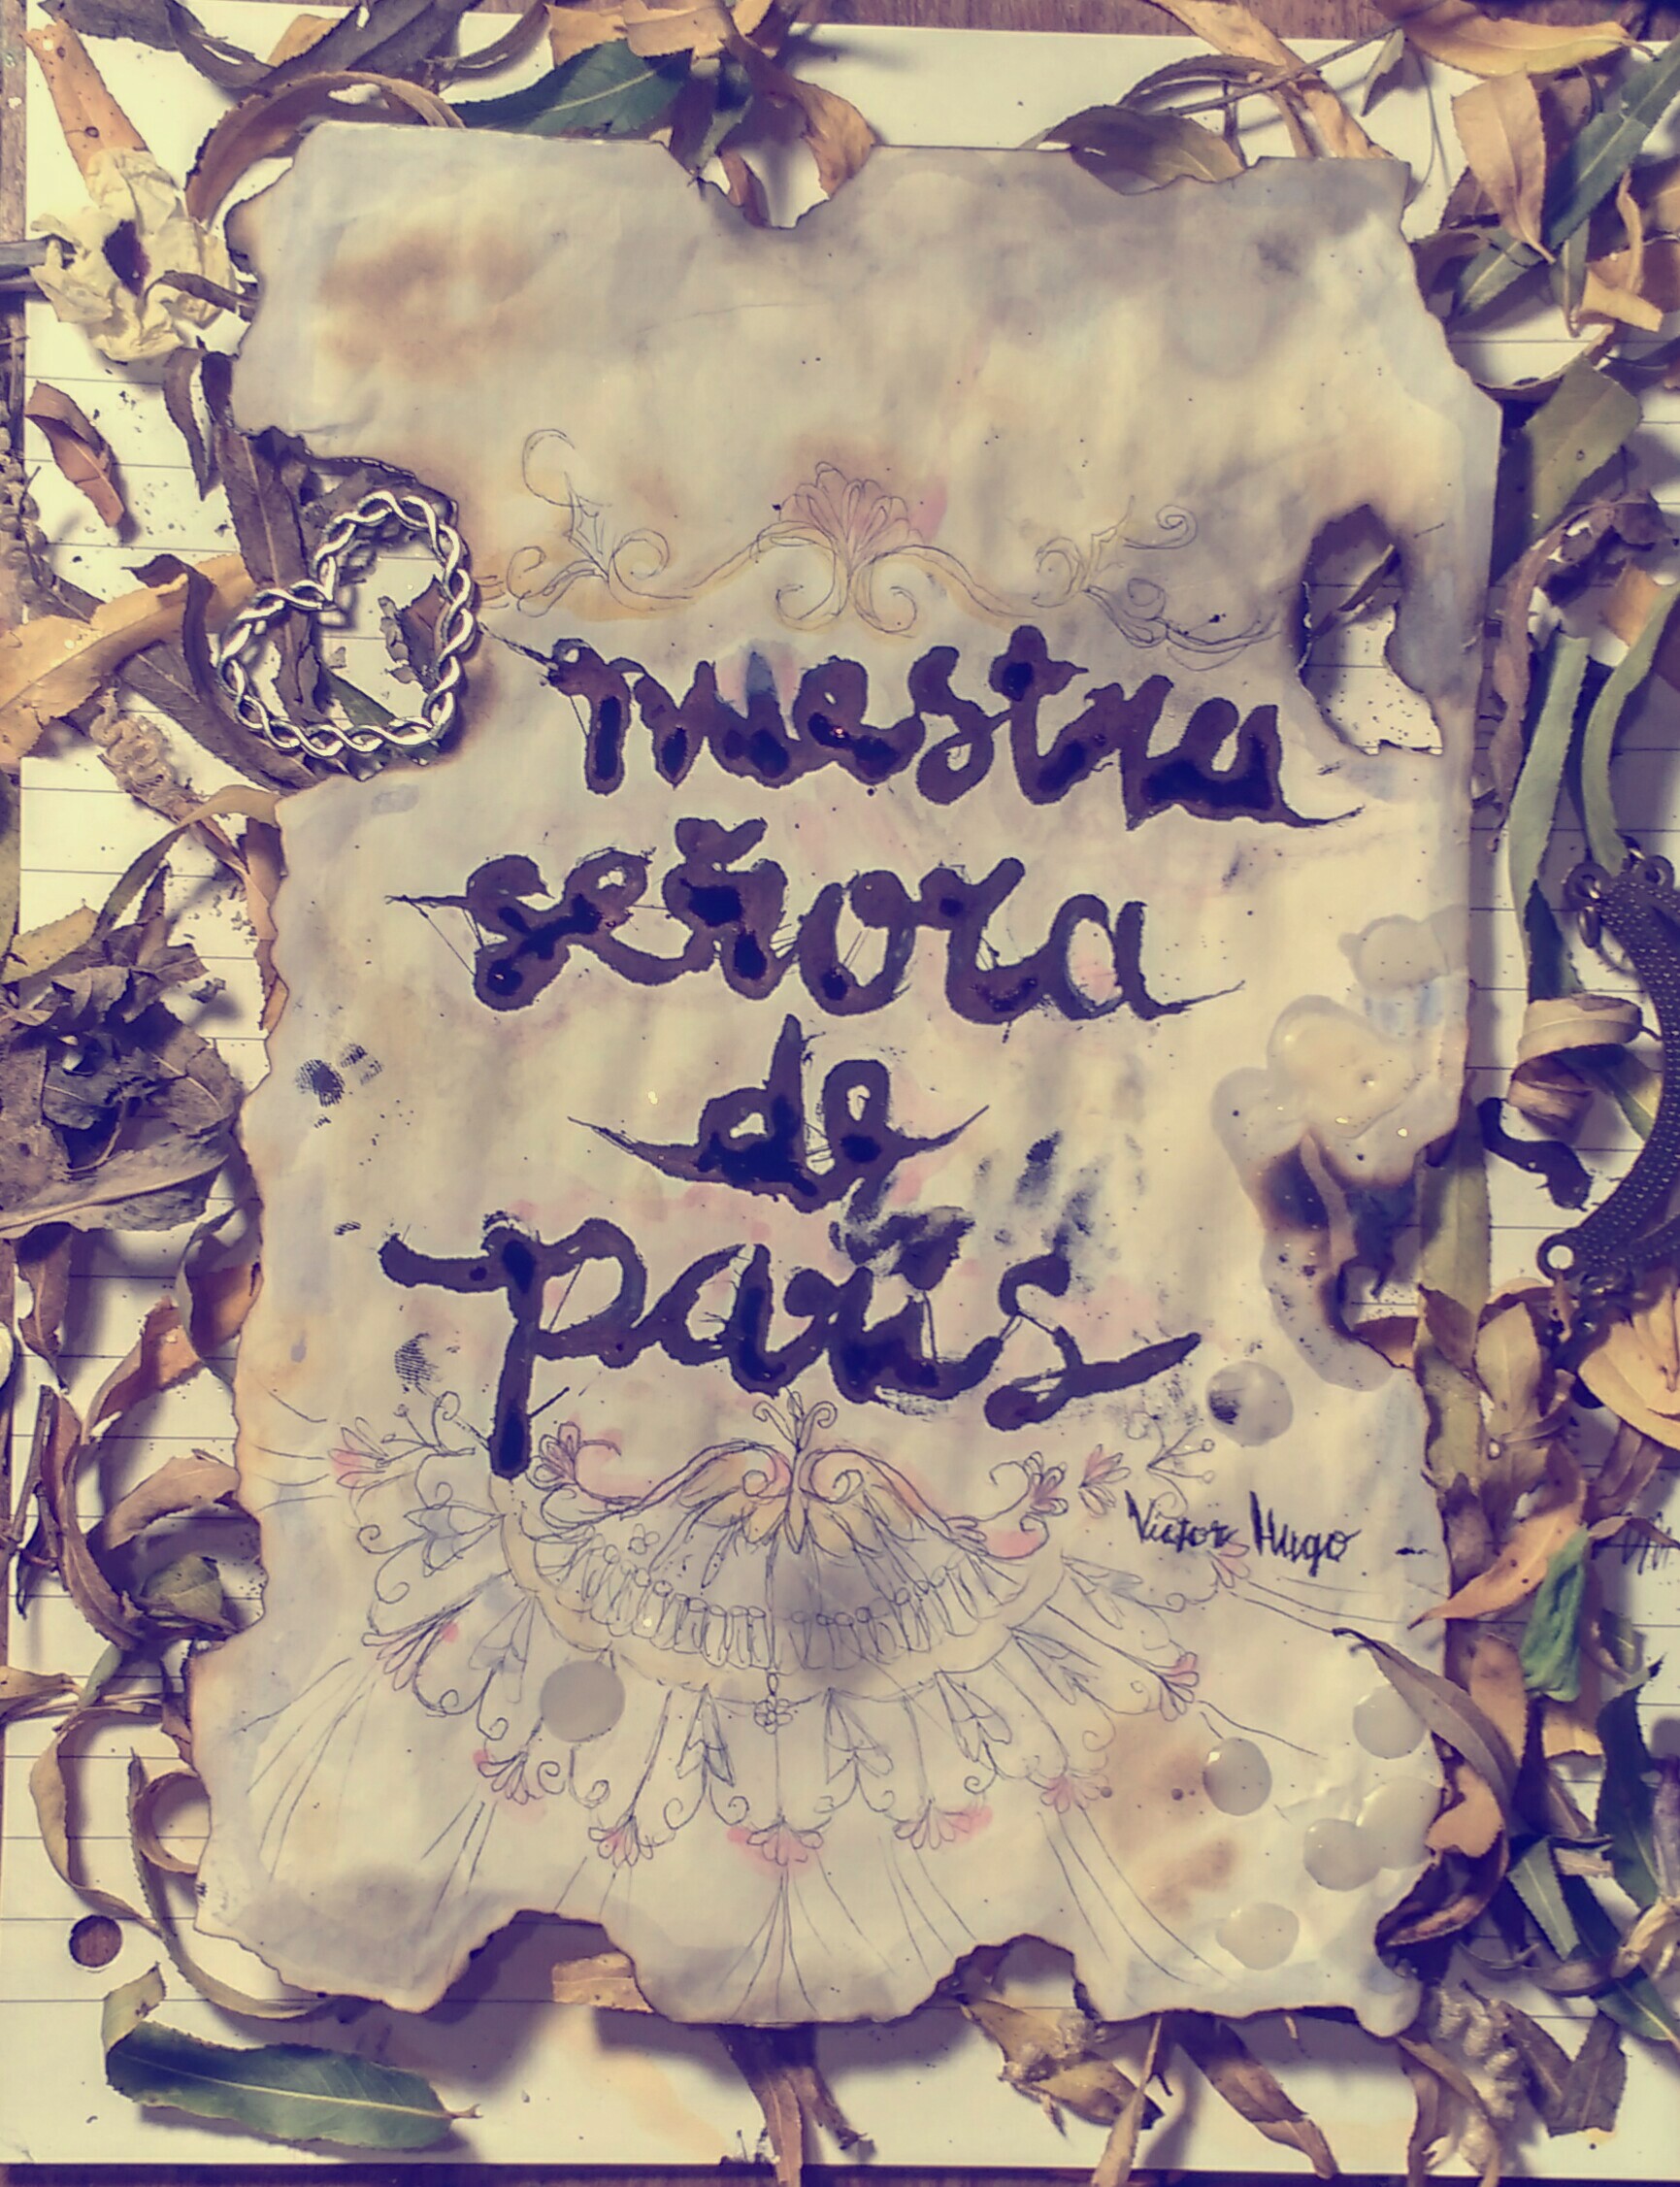 nuestra
señora
de
parís
Victor Hugo